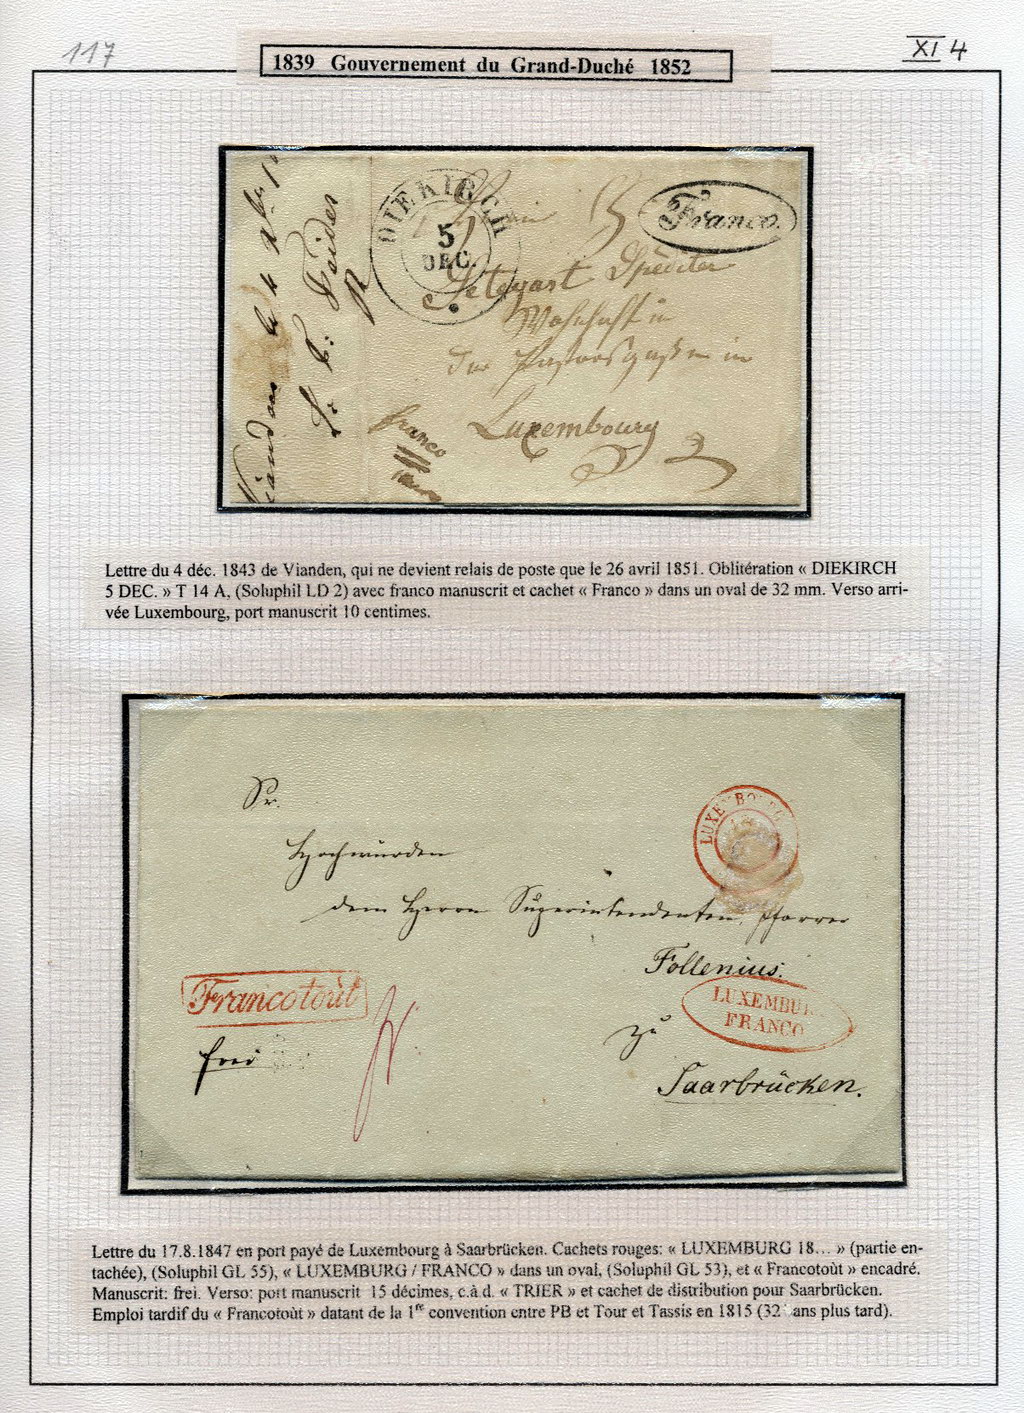 117
XI 4
1839 Gouvernement du Grand-Duché 1852
DIEKIRCH
5
DEC.
Franco.
Spediter
Wohnhaft in
der in
Luxembourg
franco
Vianden le 4
Lettre du 4 déc. 1843 de Vianden, qui ne devient relais de poste que le 26 avril 1851. Oblitération « DIEKIRCH
5 DEC. » T 14 A, (Soluphil LD 2) avec franco manuscrit et cachet « Franco » dans un oval de 32 mm. Verso arri-
vée Luxembourg, port manuscrit 10 centimes.
Sr.
Hochwürden
dem Herrn Superintendenten, Pfarrer
Follenius.
zu
Saarbrücken.
LUXEMBOURG
LUXEMBUR
FRANCO
Francotoùt
frei
Lettre du 17.8.1847 en port payé de Luxembourg à Saarbrücken. Cachets rouges: « LUXEMBURG 18... » (partie en-
tachée), (Soluphil GL 55), « LUXEMBURG / FRANCO » dans un oval, (Soluphil GL 53), et « Francotoùt » encadré.
Manuscrit: frei. Verso: port manuscrit 15 décimes, c.à d. « TRIER » et cachet de distribution pour Saarbrücken.
Emploi tardif du « Francotoùt » datant de la 1re convention entre PB et Tour et Tassis en 1815 (32 ans plus tard).